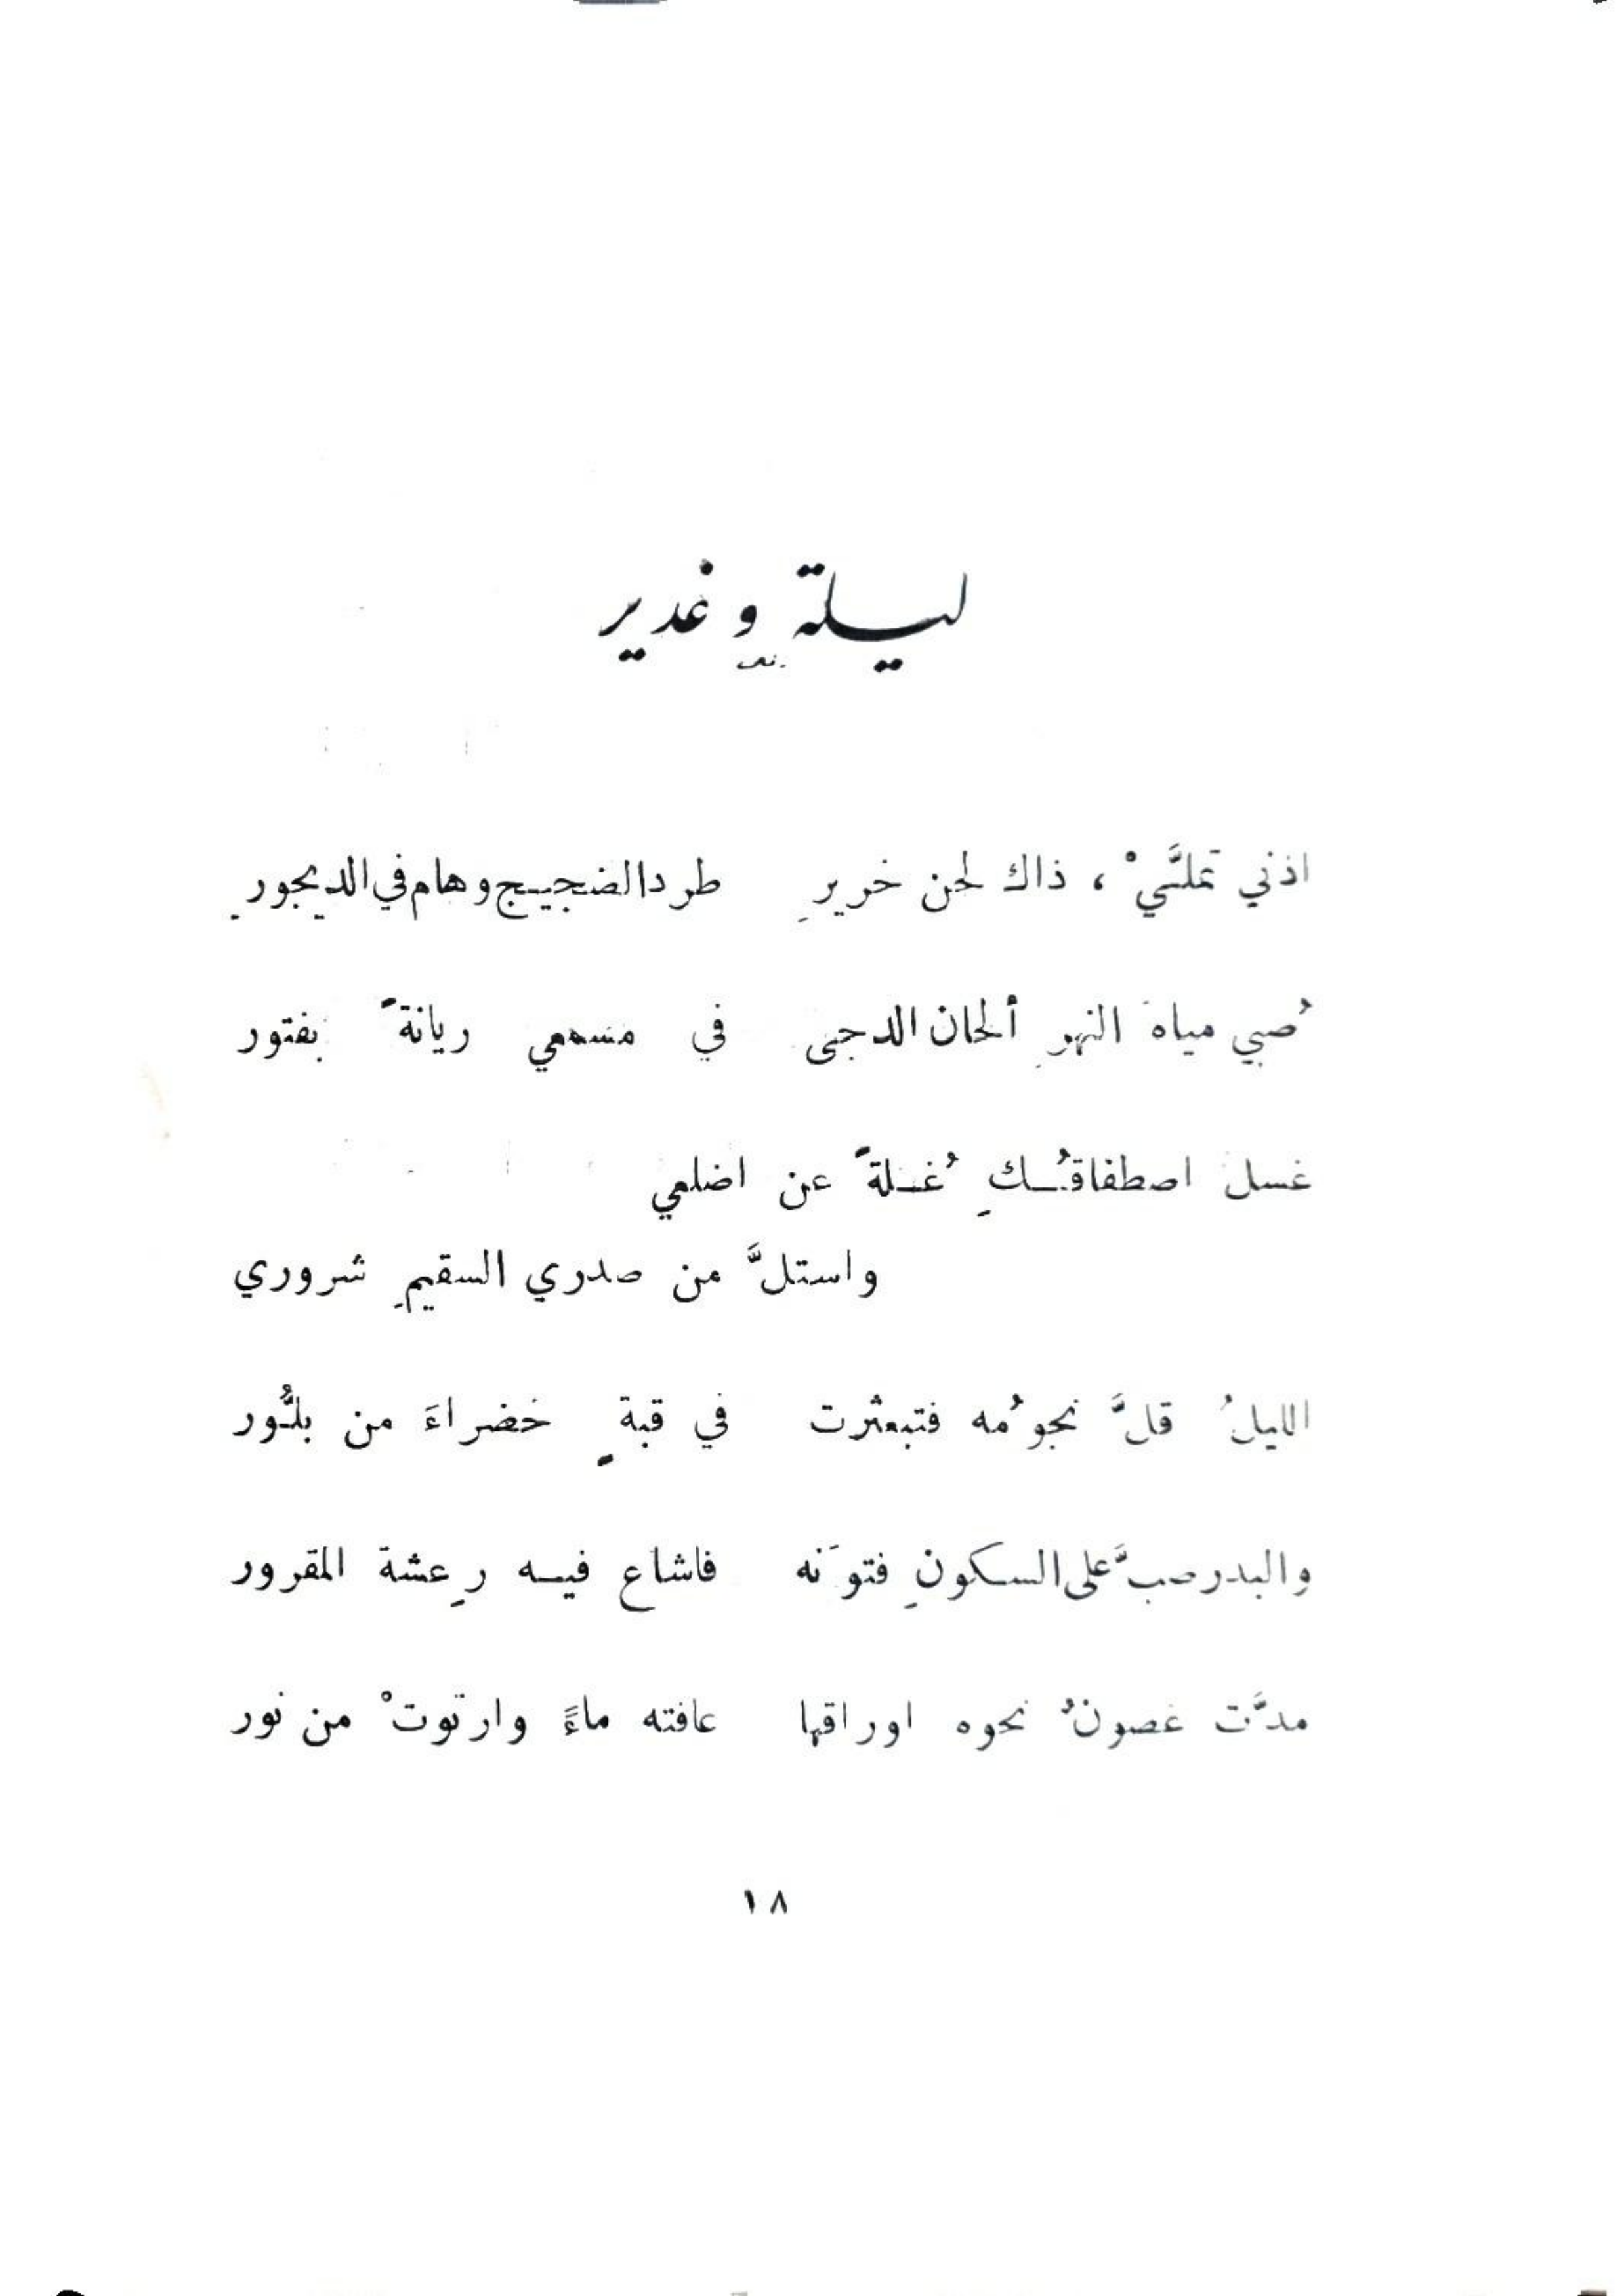 ليلة وغدير
اذني تملَّيْ ، ذاك لحن خريرِ طرد الضجيج وهام في الديجورِ
صُبي مياهَ النهرِ ألحان الدجى في مسمعي ريانةً بفتور
غسل اصطفاقُكِ غُلةً عن اضلعي
واستلَّ من صدري السقيمِ شروري
الليلُ قلَّ نجومُه فتبعثرت في قبةٍ خضراءَ من بلُّور
والبدر صبَّ على السكونِ فتونَه فاشاع فيه رِعشة المقرور
مدَّت غصونٌ نحوه اوراقها عافته ماءً وارتوتْ من نور
١٨